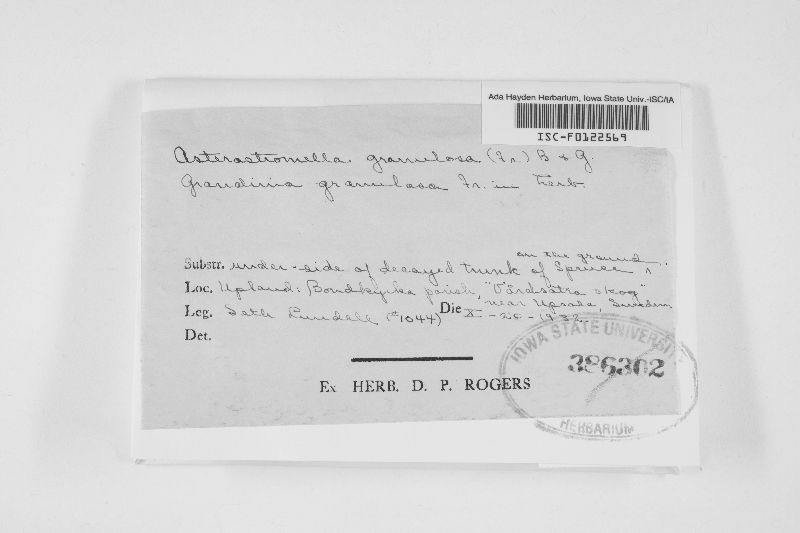 Ada Hayden Herbarium, Iowa State Univ.-ISC/IA
ISC-F0122569
Asterostromella granulosa (Fr.) B & G.
Grandinia granulosa Fr. in herb.
on the ground
Substr. under-side of decayed trunk of Spruce ^
Loc. Upland: Bondkyrka parish, "Vårdsätra skog"
near Upsala, Sweden
Leg. Seth Lundell (#1044) Die XI - 20 - 1932
Det.
Ex HERB. D. P. ROGERS
IOWA STATE UNIVERSITY
386302
HERBARIUM